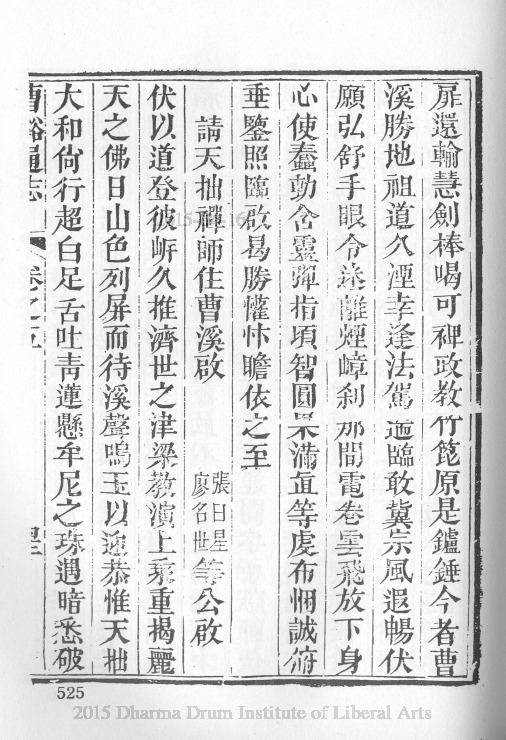 扉還輸慧劍棒喝可裨政教竹篦原是鑪錘今者曹
溪勝地祖道久湮幸逢法駕遄臨敢冀宗風遐暢伏
願弘舒手眼令迷離煙嶂刹那間電卷雲飛放下身
心使蠢動含靈彈指頃智圓果滿某等虔布悃誠俯
垂鑒照臨啟曷勝懽忭瞻依之至
請天拙禪師住曹溪啟 張日星廖名世等公啟
伏以道登彼岍久推濟世之津梁教演上乘重揭麗
天之佛日山色列屏而待溪聲鳴玉以迎恭惟天拙
大和尚行超白足舌吐青蓮懸牟尼之珠遇暗悉破
曹谿通志 卷之五
525
2015 Dharma Drum Institute of Liberal Arts